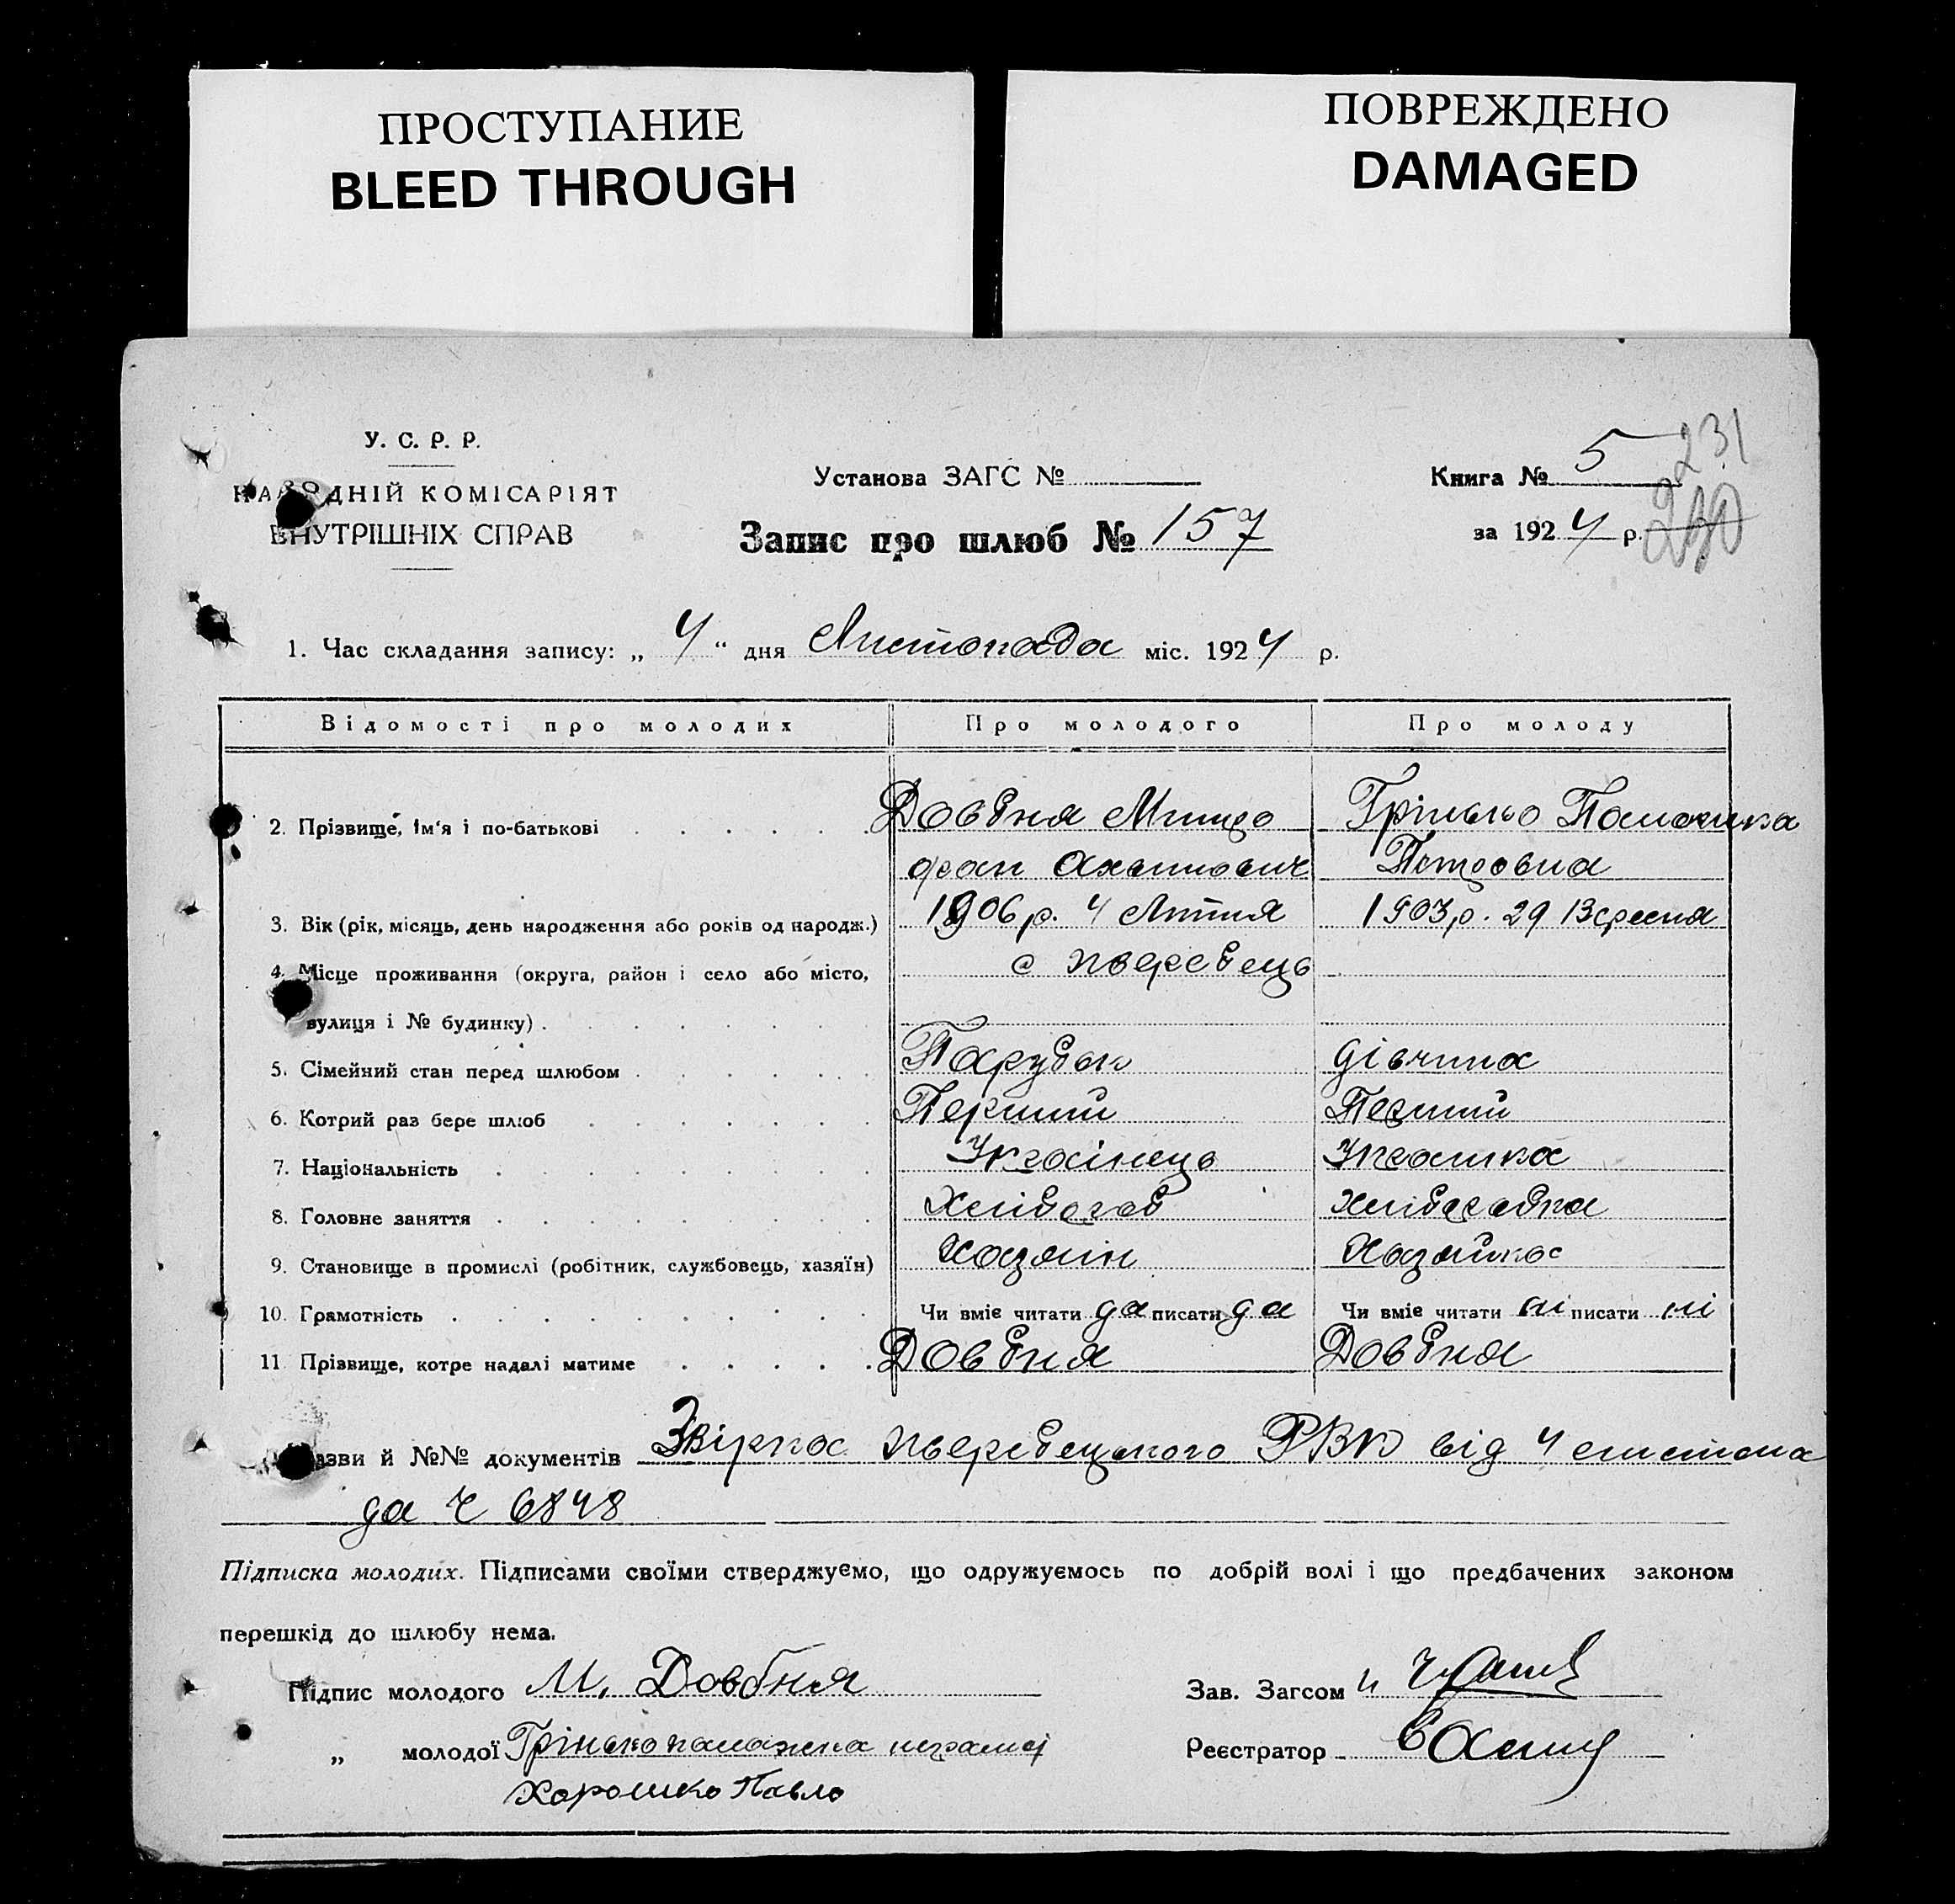 ПРОСТУПАНИЕ
BLEED THROUGH
ПОВРЕЖДЕНО
DAMAGED
У. С. Р. Р.
НАРОДНІЙ КОМІСАРІЯТ
ВНУТРІШНІХ СПРАВ
Установа ЗАГС №
Запис про шлюб № 157
Книга № 5
231
за 1924 р.
230
1. Час складання запису: „ 4 “ дня Листопада міс. 1924 р.
Відомості про молодих Про молодого Про молоду
2. Прізвище, ім'я і по-батькові Довбня Митро Грінько Паложка
фан Петровна
3. Вік (рік, місяць, день народження або років од народж.) 1906 р. 4 Лютня 1903 р. 29 Вересня
4. Місце проживання (округа, район і село або місто, с
вулиця і № будинку)
5. Сімейний стан перед шлюбом Парубок дівчина
6. Котрий раз бере шлюб Перший Перший
7. Національність Украінець Украинка
8. Головне заняття Хлібороб Хліборобка
9. Становище в промислі (робітник, службовець, хазяїн) Хазяін Хазяйка
10. Грамотність Чи вміє читати да писати да Чи вміє читати ні писати ні
11. Прізвище, котре надалі матиме Довбня Довбня
азви й №№ документів Звірка РВК від 4 листопа
да Ч 6848
Підписка молодих. Підписами своїми стверджуємо, що одружуємось по добрій волі і що предбачених законом
перешкід до шлюбу нема.
Підпис молодого М. Довбня Зав. Загсом
„ молодої Грінько палажка Реєстратор
Хорошко Павло